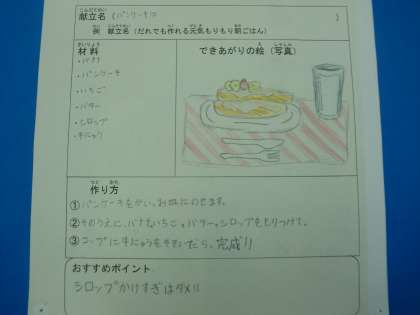 献立名（パンケーキ
例　献立名（だれでも作れる元気もりもり朝ごはん）
材料
できあがりの絵（写真）
・バナナ
・パンケーキ
・いちご
・バター
・シロップ
・牛にゅう
作り方
①パンケーキを
お皿にのせます。
②そのうえに、バナナ、いちご、バター、シロップをもりつけて、
③コップに牛にゅうをそそいだら、完成!!
おすすめポイント
シロップかけすぎはダメ!!